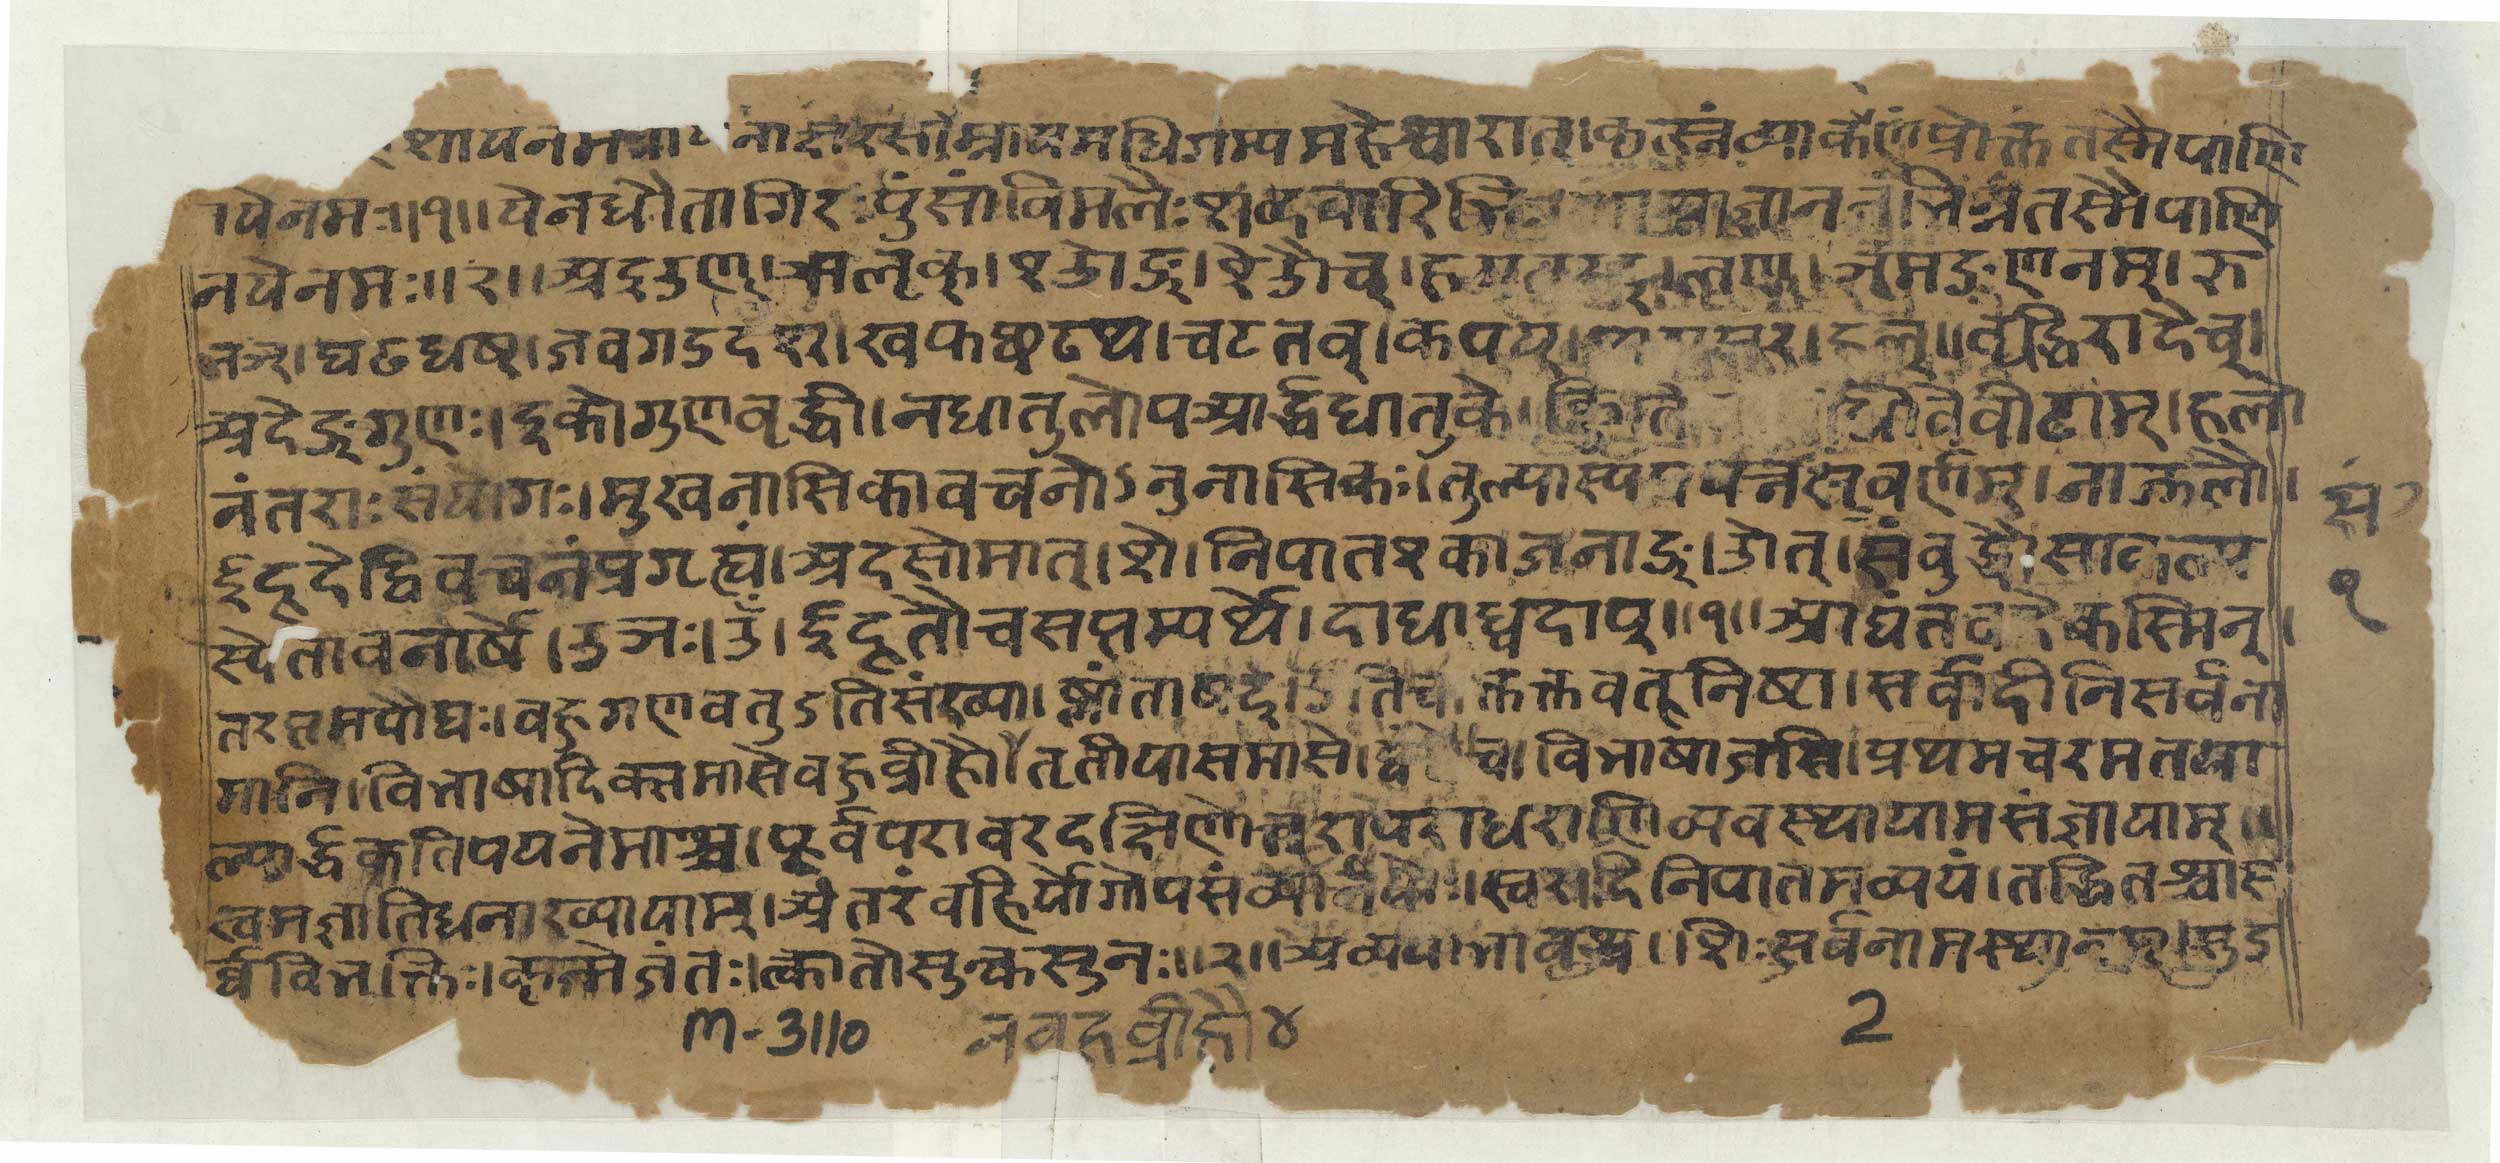 शायनम नाक्षरसमाम्नायमधिगम्यमहेश्वारात्।कृत्स्नंव्याकर्णंप्रोक्तंतस्मैपाणि
येनमः॥१॥येनधौतागिरःपुंसांविमलैःशब्दवारिभि ज्ञानजंभिन्नंतस्मैपाणि
नयेनमः॥२॥अइउण्।ऋलृक्।एओङ्।ऐऔच्।हयवरट्।लण्।ञमङणनम्।झ
भञ्।घढधष्।जबगडदश्।खफछठथ।चटतव्।कपय्।शषसर्।हल्॥वृद्धिरादैच्।
अदेङ्गुणः।इकोगुणवृद्धी।नधातुलोपआर्द्धधातुके।क्ङिति धीवेवीटाम्।हलो
नंतराःसंयोगः।मुखनासिकावचनोऽनुनासिकः।तुल्यास्यप्रयत्नंसवर्णम्।नाज्झलौ।
ईदूदेद्द्विवचनंप्रगृह्यं।अदसोमात्।शे।निपातएकाजनाङ्।ओत्।संबुद्धौसाकल्य
स्येतावनार्षे।उञः।ऊँ।ईदूतौचसप्तम्यर्थे।दाधाघ्वदाप्॥१॥आद्यंतवदेकस्मिन्।
तरप्तमपौघः।बहुगणवतुडतिसंख्या।ष्णांताषट्।डतिच।क्तक्तवतूनिष्टा।सर्वादीनिसर्वना
मानि।विभाषादिक्समासेबहुव्रीहौ।तृतीयासमासे।द्वंद्वेच।विभाषाजसि।प्रथमचरमतया
ल्पार्द्धकतिपयनेमाश्च।पूर्वपरावरदक्षिणोत्तरापराधराणिव्यवस्थायामसंज्ञायाम्॥
स्वमज्ञातिधनाख्यायाम्।अंतरंबहिर्योगोपसंव्यानयोः।स्वरादिनिपातमव्ययं।तद्धितश्चास
र्वविभक्तिः।कृन्मेजंतः।त्क्वातोसुन्कसुनः॥२॥अव्ययीभावश्च।शिःसर्वनामस्थानम्।सुड
नबहुव्रीहौ४
सं
१
m-3110
2